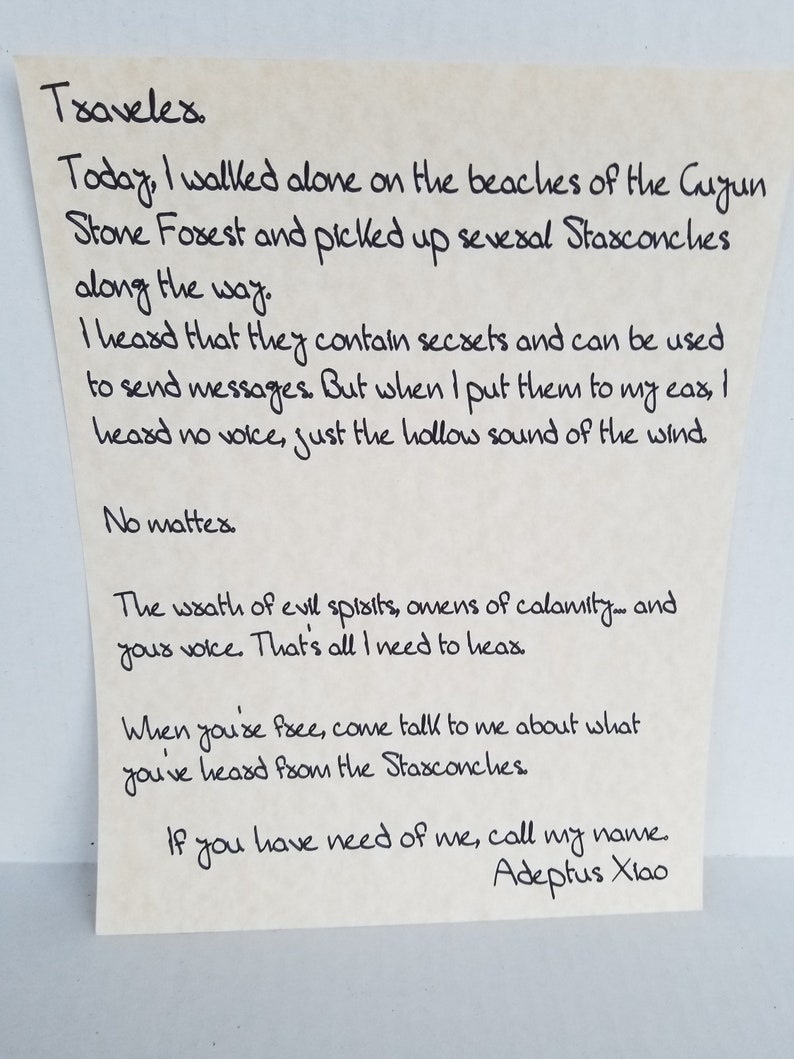 Traveler.
Today, I walked alone on the beaches of the Guyun
Stone Forest and picked up several Starconches
along the way.
I heard that they contain secrets and can be used
to send messages. But when I put them to my ear, I
heard no voice, just the hollow sound of the wind.
No matter.
The wrath of evil spirits, omens of calamity... and
your voice. That's all I need to hear.
When you're free, come talk to me about what
you've heard from the Starconches.
If you have need of me, call my name.
Adeptus Xiao